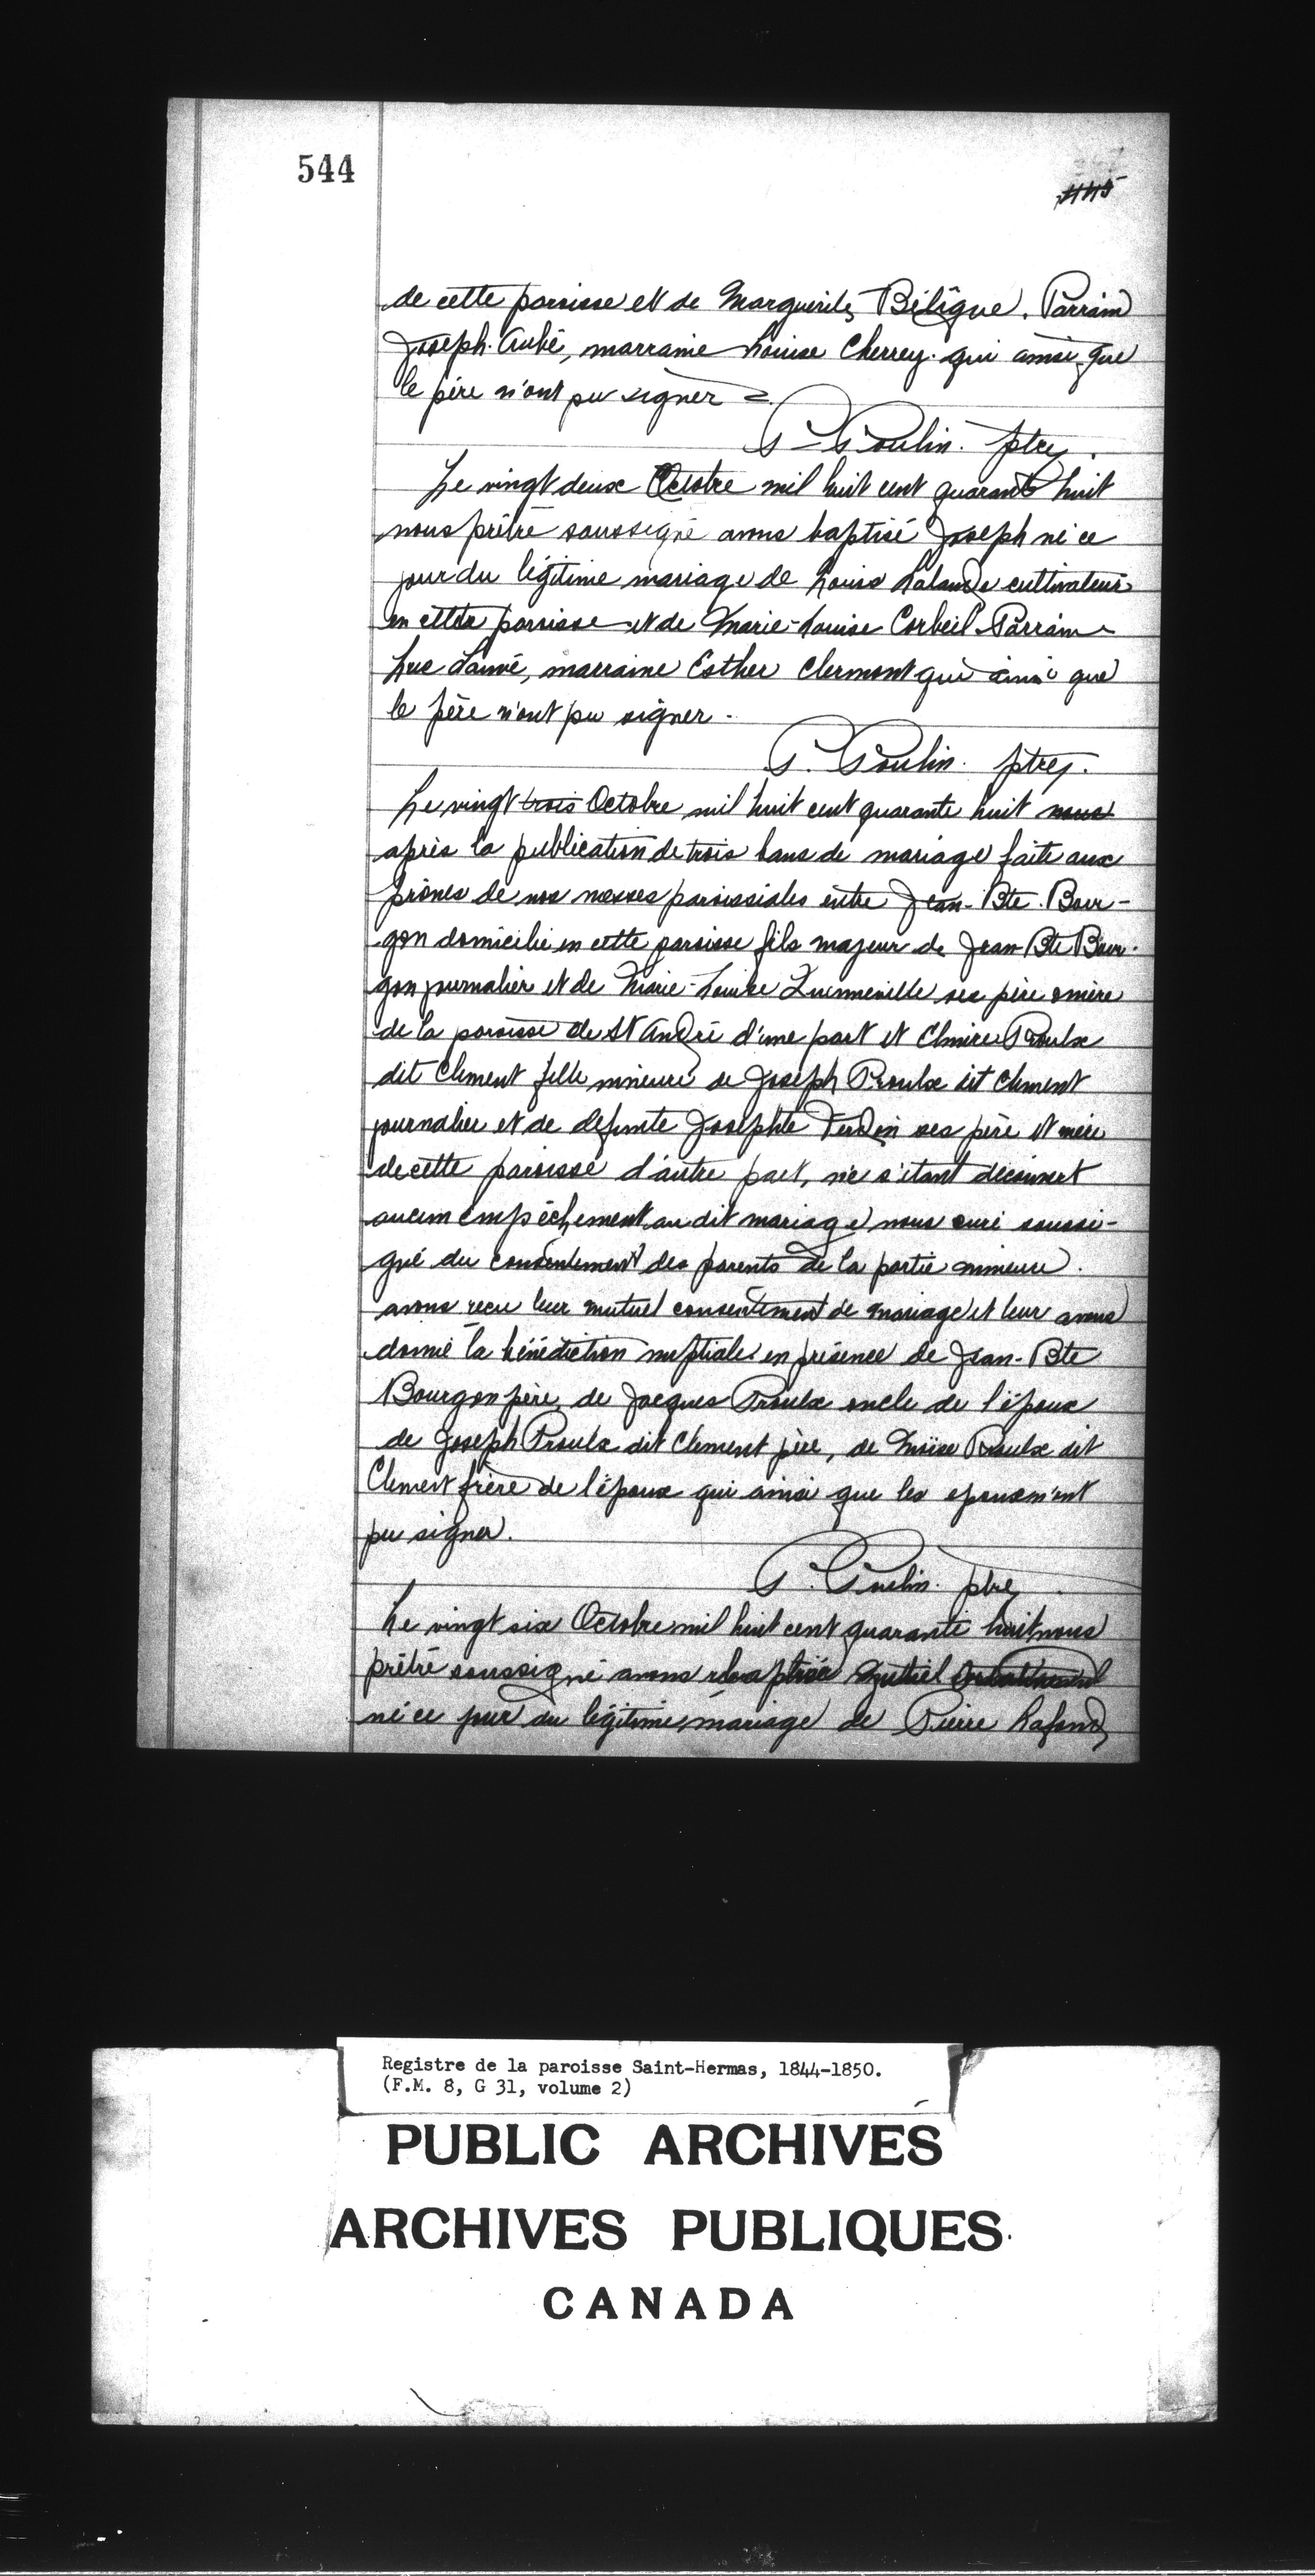 544
445
de cette paroisse et de Marguerite Béligue. Parrain
Joseph Aubé, marraine Louise Cherrey qui ainsi que
le père n'ont pu signer
P. Poulin. ptre
Le vingt deux Octobre mil huit cent quarante huit
nous prêtre soussigné avons baptisé Joseph né ce
jour du légitime mariage de Louis Lalande cultivateur
en cette paroisse et de Marie-Louise Corbeil Parrain
Luc Sauvé, marraine Esther Clermont qui ainsi que
le père n'ont pu signer.
P. Poulin. ptre.
Le vingt trois Octobre mil huit cent quarante huit nous
après la publication de trois bans de mariage faite aux
prônes de nos messes paroissiales entre Jean-Bte. Bour-
gon domicilié en cette paroisse fils majeur de Jean-Bte Bour-
gon journalier et de Marie-Louise Quenneville ses père & mère
de la paroisse de St André d'une part et Elmire Proulx
dit Clement fille mineure de Joseph Proulx dit Clement
journalier et de defunte Josephte Verdon ses père et mère
de cette paroisse d'autre part, ne s'étant découvert
aucun empêchement au dit mariage nous curé soussi-
gné du consentement des parents de la partie mineure.
avons reçu leur mutuel consentement de mariage et leur avons
donné la bénédiction nuptiale en présence de Jean-Bte
Bourgon père, de Jacques Proulx oncle de l'époux
de Joseph Proulx dit Clement père, de Moïse Proulx dit
Clement frère de l'épouse qui ainsi que les epoux n'ont
pu signer.
P. Poulin. ptre
Le vingt six Octobre mil huit cent quarante huit nous
prêtre soussigné avons
né ce jour du légitime mariage de Pierre Lafond
Registre de la paroisse Saint-Hermas, 1844-1850.
(F.M. 8, G 31, volume 2)
PUBLIC ARCHIVES
ARCHIVES PUBLIQUES
CANADA